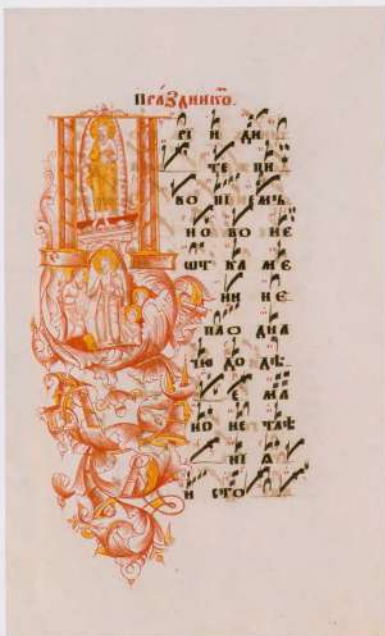 Пра́здникѡ.
П рі и ди
те пи
во пі емъ
но во не
ѿ ка ме
ни не
пло дна
чю до дѣ
е ма
но не тлѣ
ні ѧ
и сто